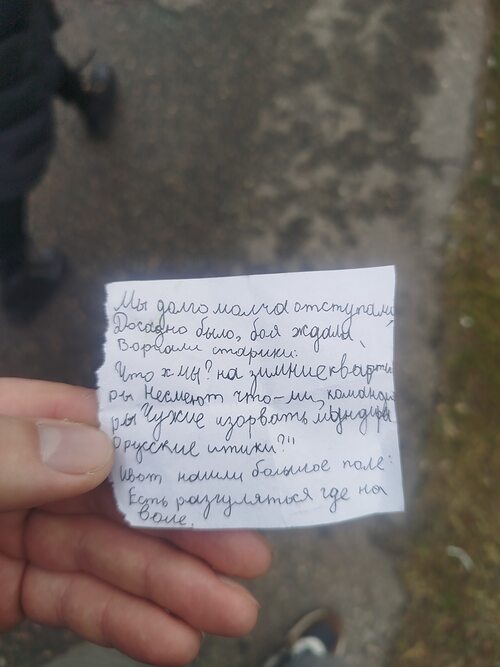 Мы долго молча отступали,
Досадно было, боя ждали,
Ворчали старики:
Что ж мы? на зимние кварти
ры Несмеют что-ли, команди
ры Чужие изорвать мундиры
О русские штыки?"
Ивот нашли большое поле:
Есть разгуляться где на
воле.